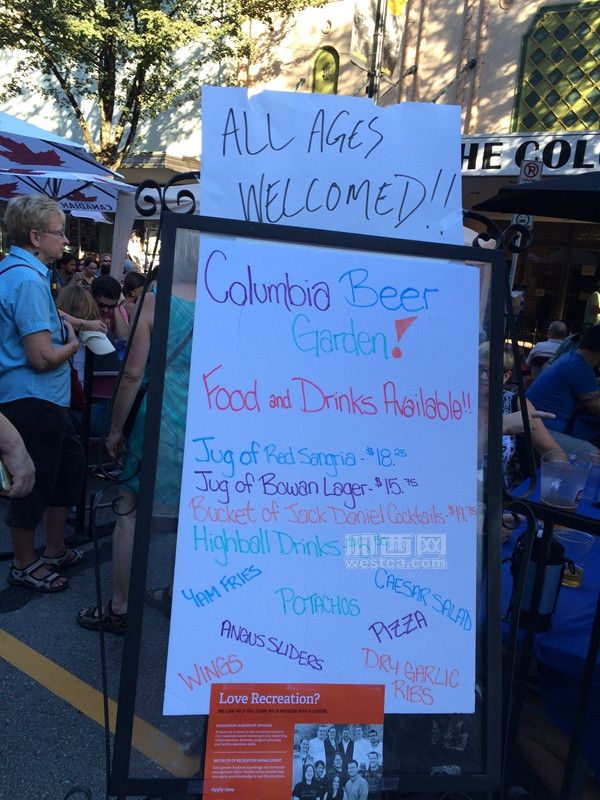 ALL AGES
WELCOMED!!
HE COL
CANADIAN
Columbia Beer
Garden!
Food and Drinks Available!!
Jug of Red Sangria - $18.25
Jug of Bowan Lager - $15.75
Bucket of Jack Daniel Cocktails - $19.75
Highball Drinks
西网
westca.com
YAM FRIES
POTACHOS
CAESAR SALAD
ANGUS SLIDERS
PIZZA
WINGS
DRY GARLIC
RIBS
Love Recreation?
WE CAN HELP YOU TURN YOUR PASSION INTO A CAREER.
RECREATION LEADERSHIP DIPLOMA
BACHELOR OF RECREATION MANAGEMENT
Apply now.